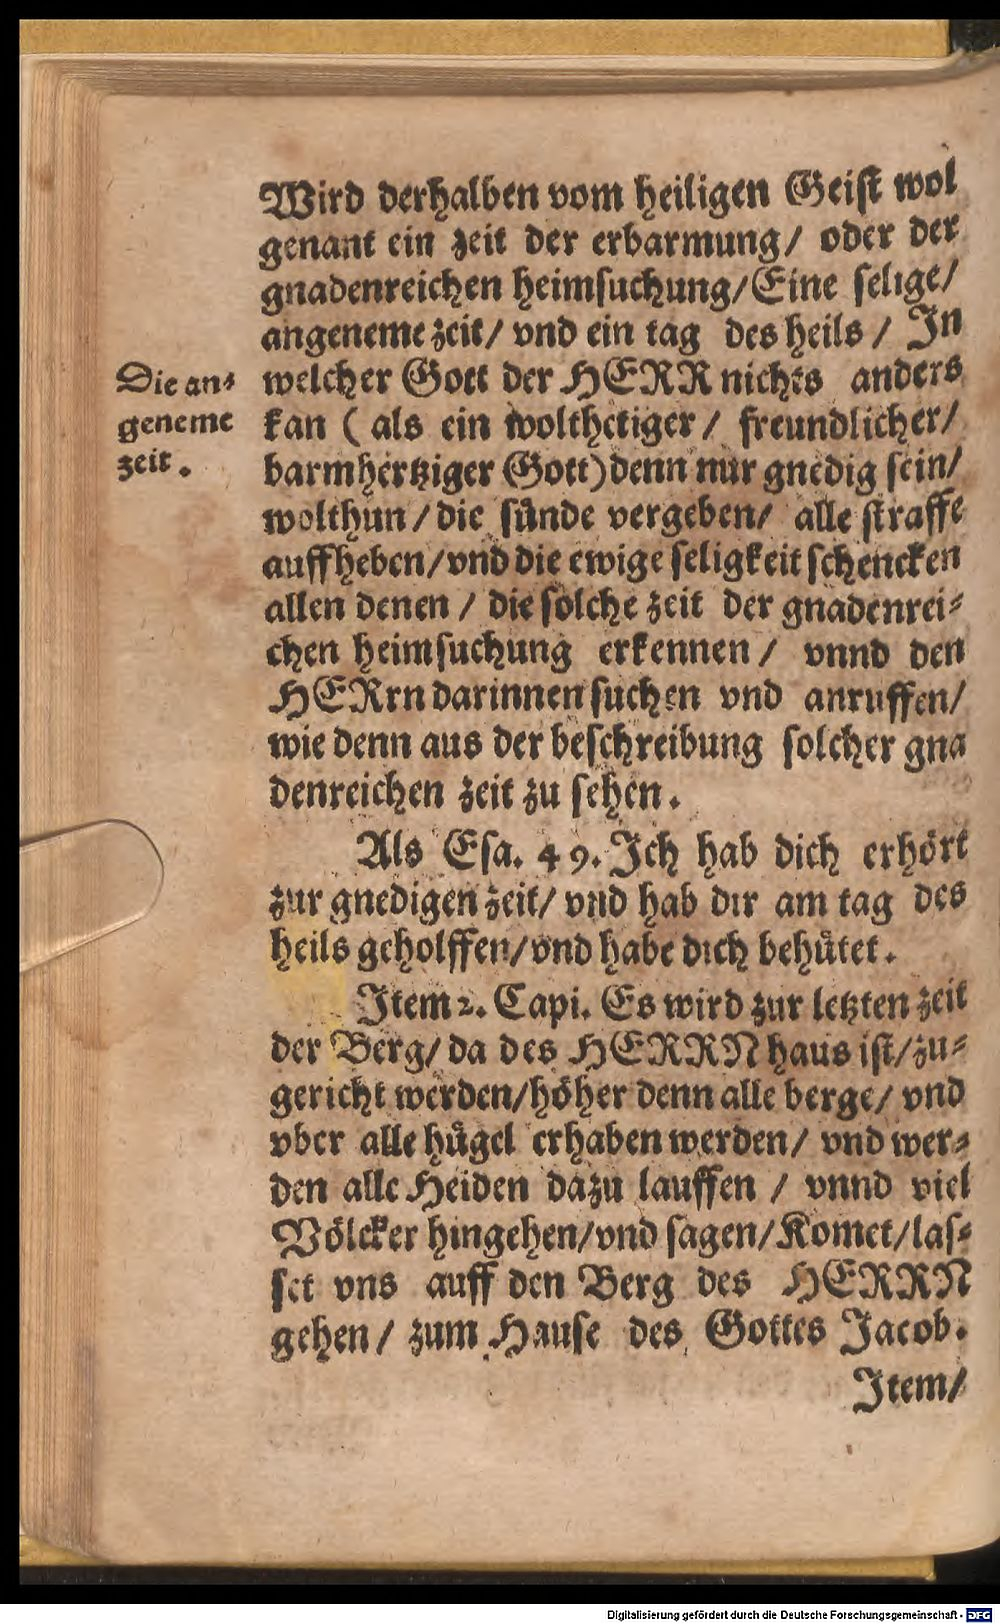 Wird derhalben vom heiligen Geist wol
genant ein zeit der erbarmung/ oder der
gnadenreichen heimsuchung/Eine selige/
angeneme zeit/ vnd ein tag des heils / In
Die an-
geneme
zeit.
welcher Gott der HERR nichts anders
kan ( als ein wolthetiger / freundlicher/
barmhertziger Gott) denn nur gnedig sein/
wolthun / die sünde vergeben/ alle straffe
auffheben/vnd die ewige seligkeit schencken
allen denen / die solche zeit der gnadenrei-
chen heimsuchung erkennen / vnnd den
HERrn darinnen suchen vnd anruffen/
wie denn aus der beschreibung solcher gna
denreichen zeit zu sehen.
Als Esa. 49. Ich hab dich erhört
zur gnedigen zeit/ vnd hab dir am tag des
heils geholffen/vnd habe dich behütet.
Item 2. Capi. Es wird zur letzten zeit
der Berg/ da des HERRN haus ist/zu-
gericht werden/höher denn alle berge/ vnd
vber alle hügel erhaben werden/ vnd wer-
den alle Heiden dazu lauffen / vnnd viel
Völcker hingehen/vnd sagen/Komet/las-
set vns auff den Berg des HERRN
gehen/ zum Hause des Gottes Jacob.
Item/
Digitalisierung gefördert durch die Deutsche Forschungsgemeinschaft - DFG